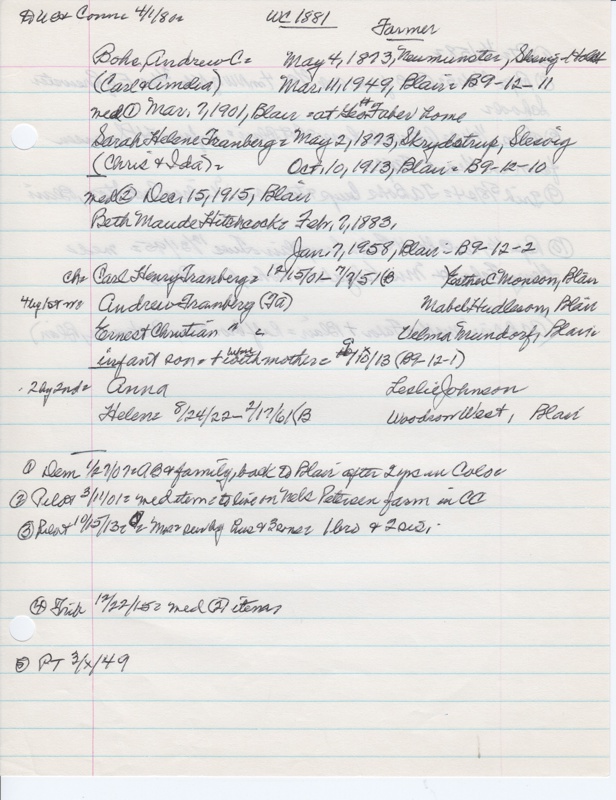 Conn 4/1/80=
WC 1881
Farmer
Bohs, Andrew C= May 4, 1873, Neumunster, Slesvig-Holst
(Carl & Amdia) Mar. 11, 1949, Blair= B9-12-11
med ① Mar. 7, 1901, Blair= at Geo Faber home
Sarah Helene Tranberg= May 2, 1873, Skrydstrup, Slesvig
(Chris & Ida)= Oct. 10, 1913, Blair= B9-12-10
med ② Dec. 15, 1915, Blair
Beth Maude Hitchcock= Feb. 7, 1883,
Jan. 7, 1958, Blair= B9-12-2
ch= Carl Henry Tranberg= 12/15/01- 7/9/51(B Esther C Monson, Blair
4 by 1st m= Andrew Tranberg (Ta) Mabel Hudleson, Blair
Ernest Christian " = Velma Mundorf, Blair
infant son= + with mother= 9/10/13 (B9-12-1)
2 by 2nd= Anna Leslie Johnson
Helen= 8/24/22- 2/17/61(B Woodson West, Blair
① Dem 1/27/07= AB & family, back to Blair after 2 yrs in Colo=
② Pilot 3/11/01= med item= to live on Nels Petersen farm in CC
③ Pilot 10/15/13= = Mrs= surv by hus & 3 sons= 1 bro & 2 sis.
④ Trib 12/22/15= med ② item=
⑤ PT 3/x/49